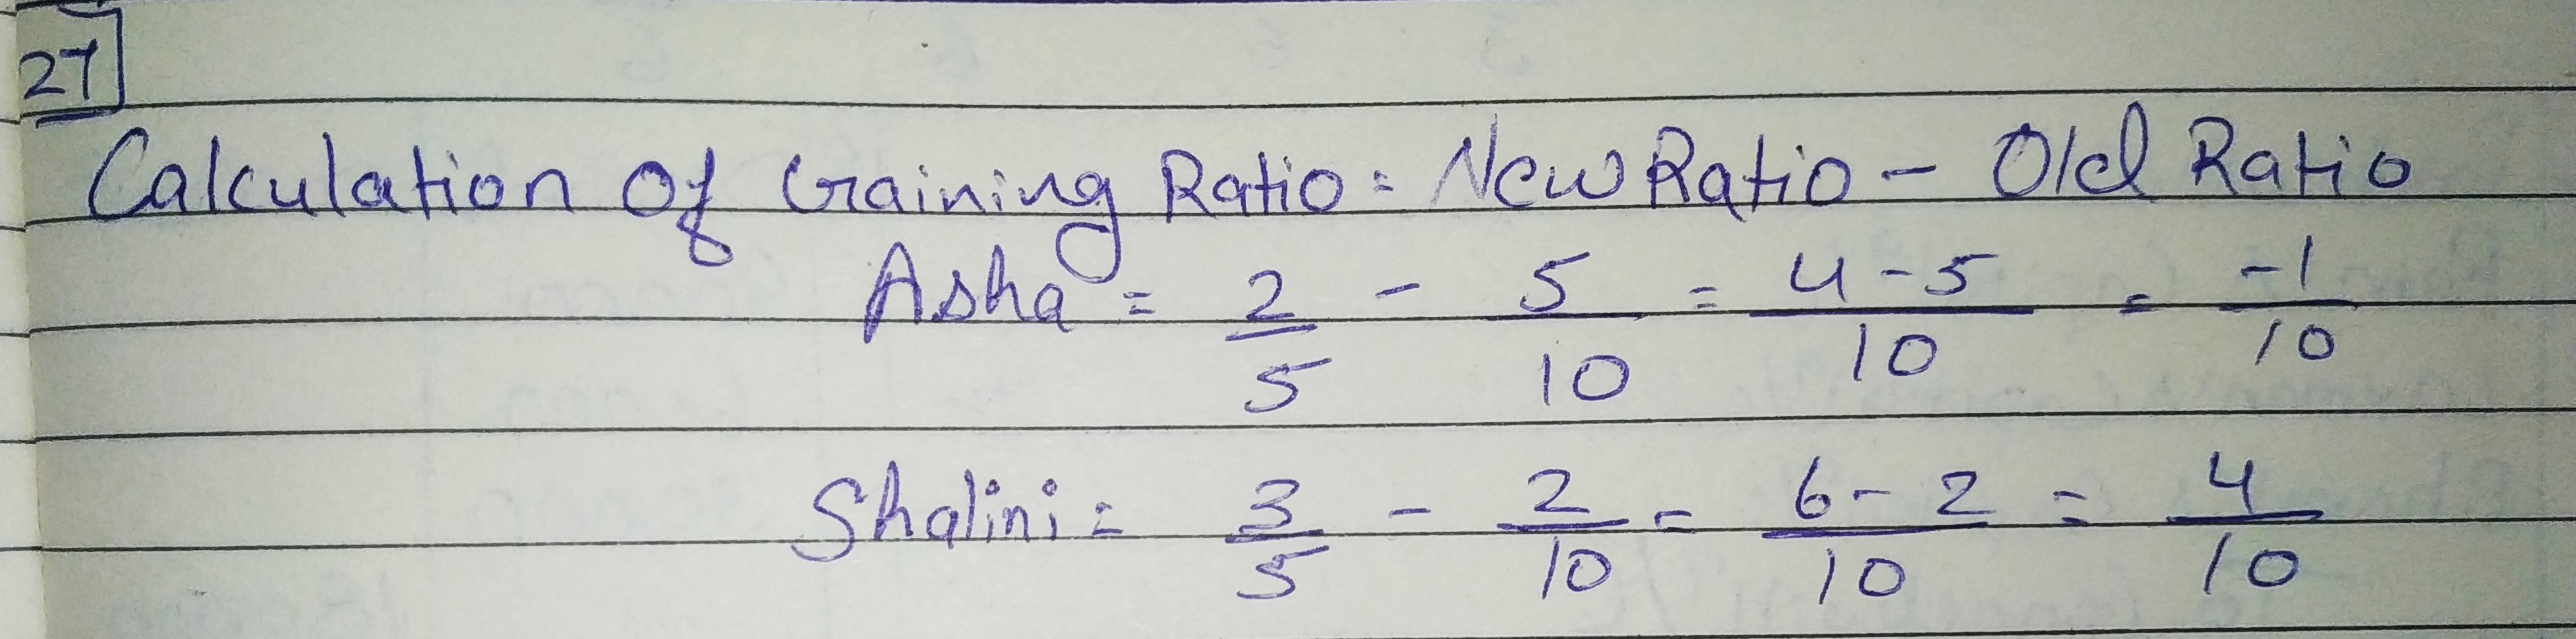 27
Calculation of Gaining Ratio = New Ratio - Old Ratio
Asha = 2/5 - 5/10 = 4-5/10 = -1/10
Shalini = 3/5 - 2/10 = 6-2/10 = 4/10